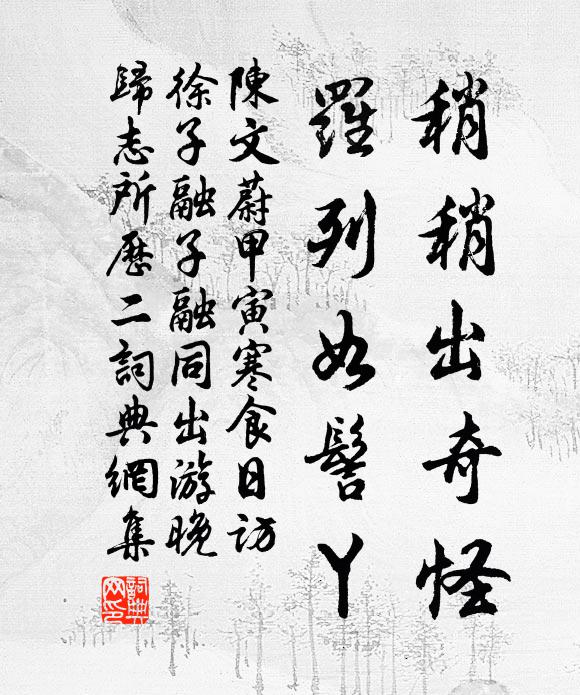 稍稍出奇怪
羅列如髻丫
陳文蔚甲寅寒食日訪
徐子融子融同出游晚
歸志所歷二詞典網集
詞典網印